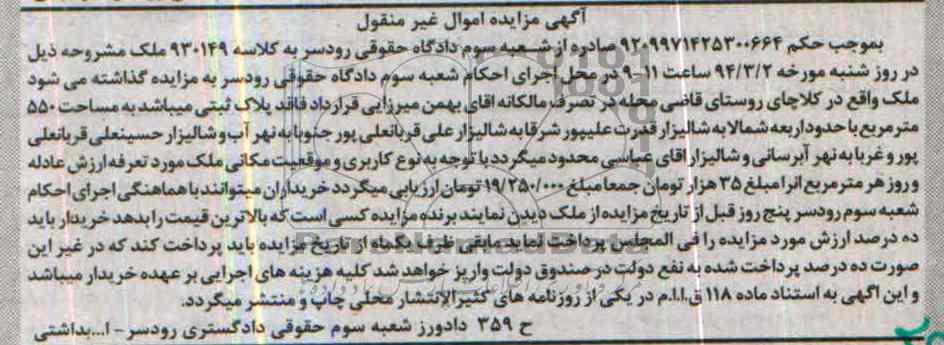 آگهی مزایده اموال غیر منقول
بموجب حکم ۹۲۰۹۹۷۱۴۲۵۳۰۰۶۶۴ صادره از شعبه سوم دادگاه حقوقی رودسر به کلاسه ۹۳۰۱۴۹ ملک مشروحه ذیل
در روز شنبه مورخه ۹۴/۳/۲ ساعت ۱۱-۹ در محل اجرای احکام شعبه سوم دادگاه حقوقی رودسر به مزایده گذاشته می شود
ملک واقع در کلاچای روستای قاضی محله در تصرف مالکانه اقای بهمن میرزایی قرار داد فاقد پلاک ثبتی میباشد به مساحت ۵۵۰
متر مربع با حدود اربعه شمالا به شالیزار قدرت علیپور شرقا به شالیزار علی قربانعلی پور جنوبا به نهر آب و شالیزار حسینعلی قربانعلی
پور و غربا به نهر آبرسانی و شالیزار اقای عباسی محدود میگردد با توجه به نوع کاربری و موقعیت مکانی ملک مورد تعرفه ارزش عادله
و روز هر متر مربع انرا مبلغ ۳۵ هزار تومان جمعا مبلغ ۱۹/۲۵۰/۰۰۰ تومان ارزیابی میگردد خریداران میتوانند با هماهنگی اجرای احکام
شعبه سوم رودسر پنج روز قبل از تاریخ مزایده از ملک دیدن نمایند برنده مزایده کسی است که بالاترین قیمت را بدهد خریدار باید
ده درصد ارزش مورد مزایده را فی المجلس پرداخت نماید مابقی ظرف یکماه از تاریخ مزایده باید پرداخت کند که در غیر این
صورت ده درصد پرداخت شده به نفع دولت در صندوق دولت واریز خواهد شد کلیه هزینه های اجرایی بر عهده خریدار میباشد
و این اگهی به استناد ماده ۱۱۸ ق.ا.ا.م در یکی از روزنامه های کثیرالانتشار محلی چاپ و منتشر میگردد.
ح ۳۵۹ دادورز شعبه سوم حقوقی دادگستری رودسر - ا...بداشتی